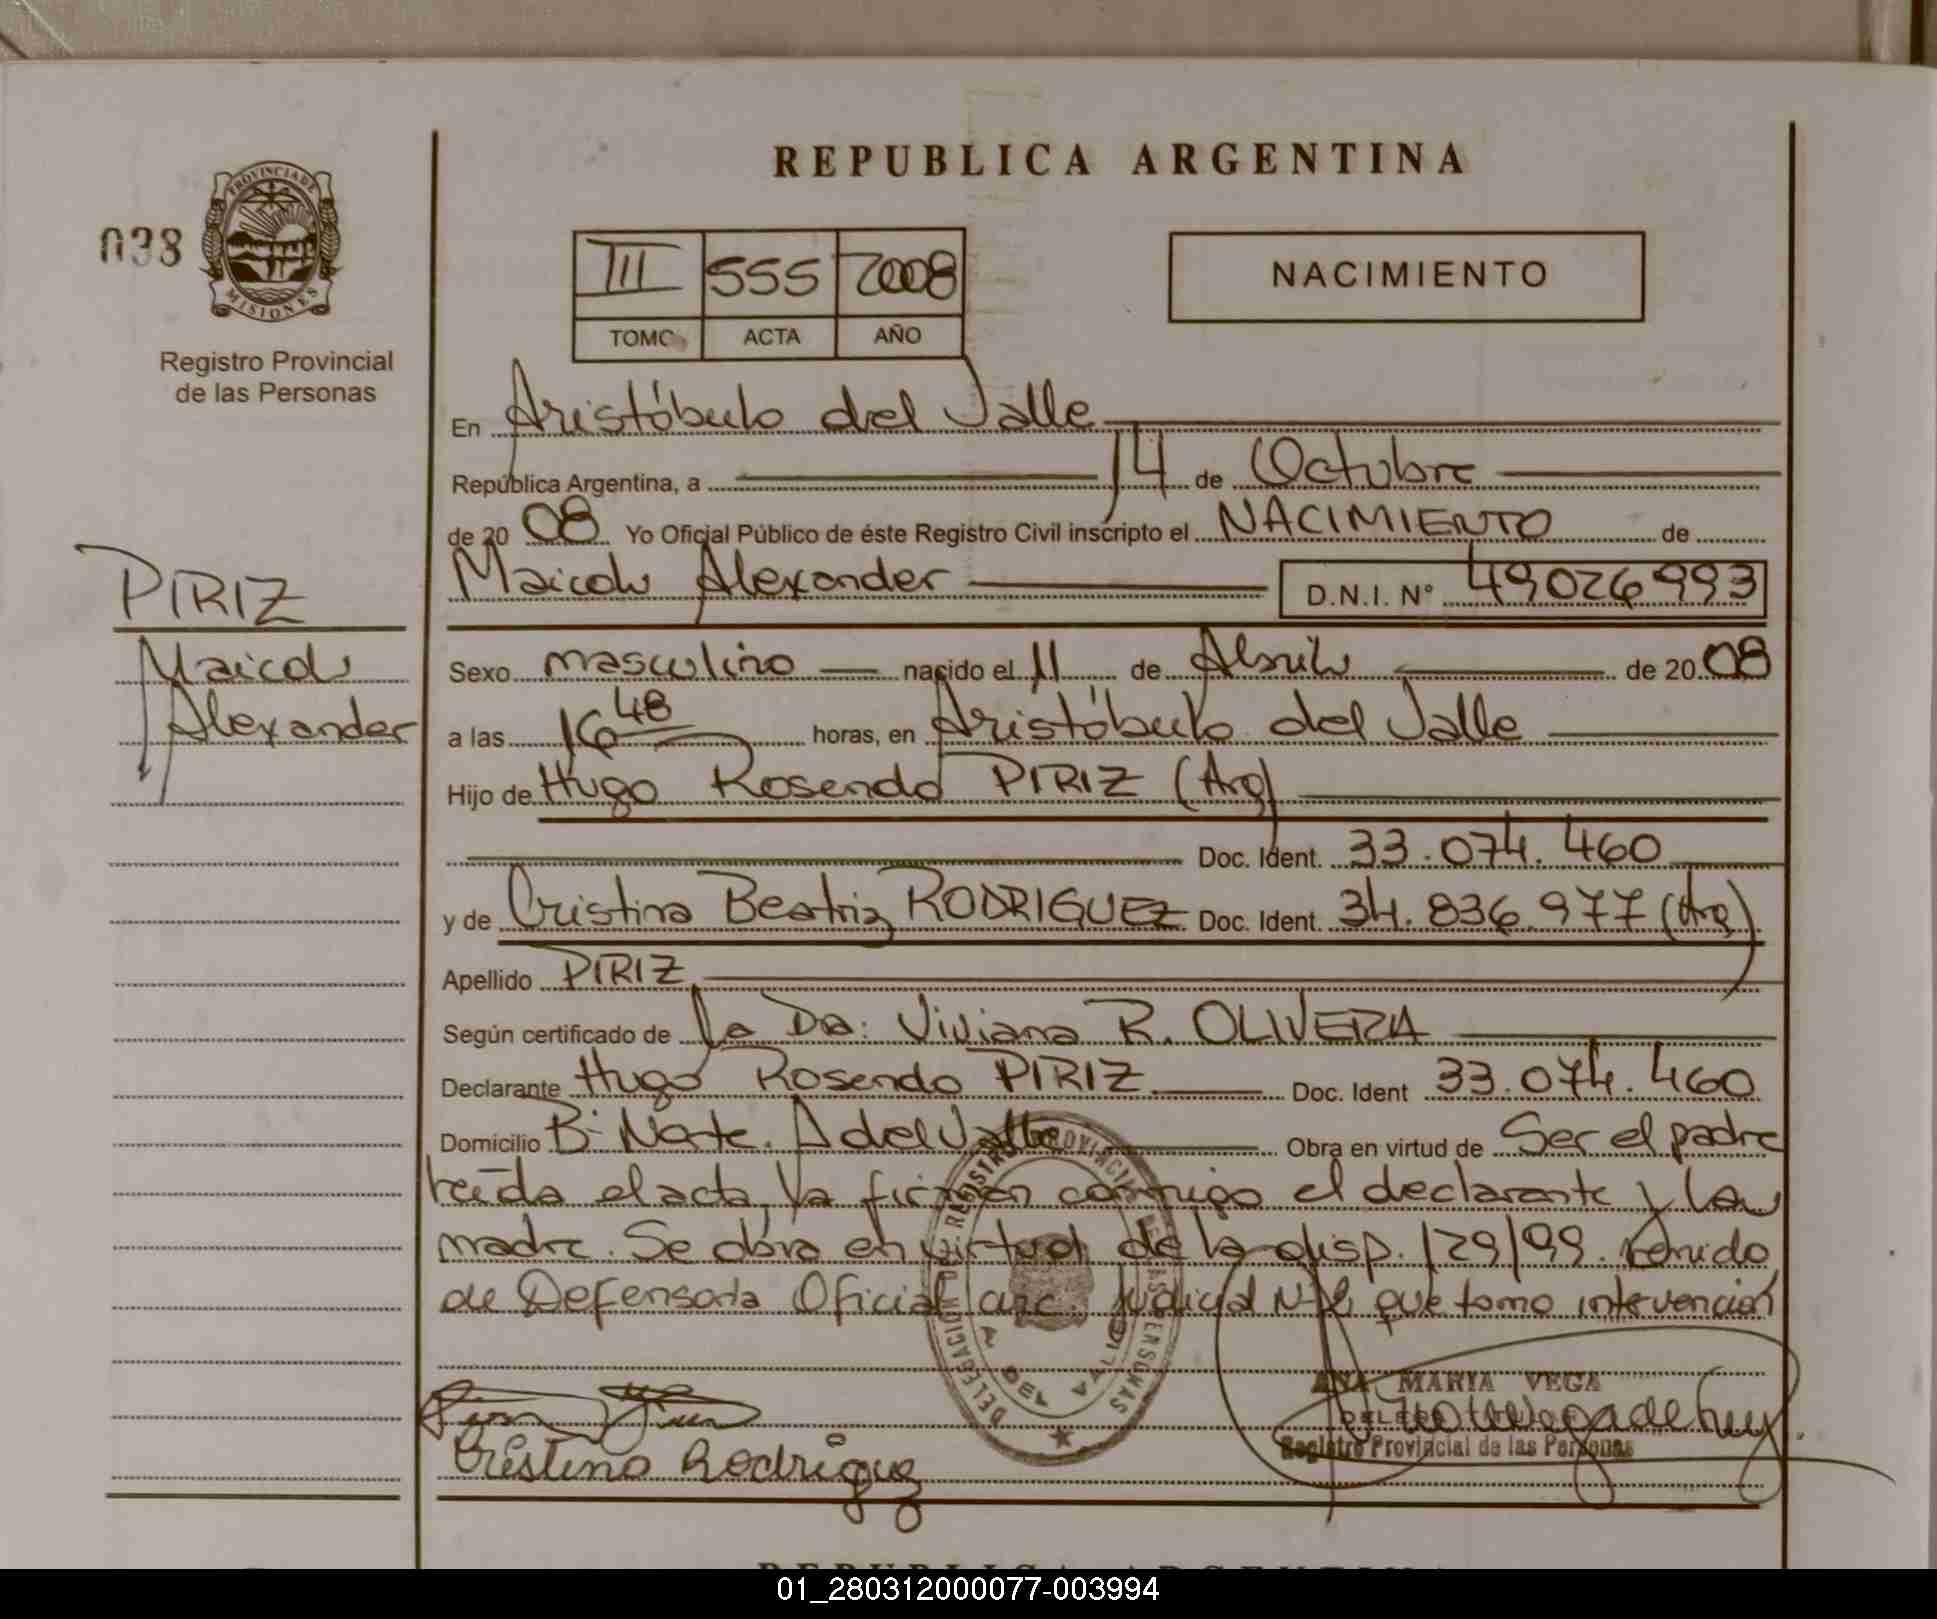 REPUBLICA ARGENTINA
038
PROVINCIA DE
MISIONES
Registro Provincial
de las Personas
III 555 2008
TOMO ACTA AÑO
NACIMIENTO
En Aristóbulo del Valle
República Argentina, a 14 de Octubre
de 2008 Yo Oficial Público de éste Registro Civil inscripto el NACIMIENTO de
Maicol Alexander D.N.I. Nº 49026993
PIRIZ
Maicol
Alexander
Sexo masculino nacido el 11 de Abril de 2008
a las 16 48 horas, en Aristóbulo del Valle
Hijo de Hugo Rosendo PIRIZ (Arg)
Doc. Ident. 33.074.460
y de Cristina Beatriz RODRIGUEZ Doc. Ident. 34.836.977 (Arg)
Apellido PIRIZ
Según certificado de la Dra: Viviana R. OLIVERA
Declarante Hugo Rosendo PIRIZ Doc. Ident 33.074.460
Domicilio Bº Norte. A del Valle Obra en virtud de Ser el padre
leída el acta, la firman conmigo el declarante y la
madre. Se obra en virtud de la disp. 129/99.
de Defensoría Oficial Judicial que tomo intervención
DELEGACION DEL REGISTRO PROVINCIAL DE LAS PERSONAS
DEL VALLE
ANA MARIA VEGA
Registro Provincial de las Personas
Cristina Rodriguez
01_280312000077-003994